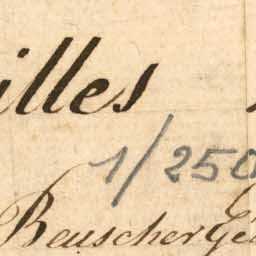 illes
1/250
Beuscher Gé